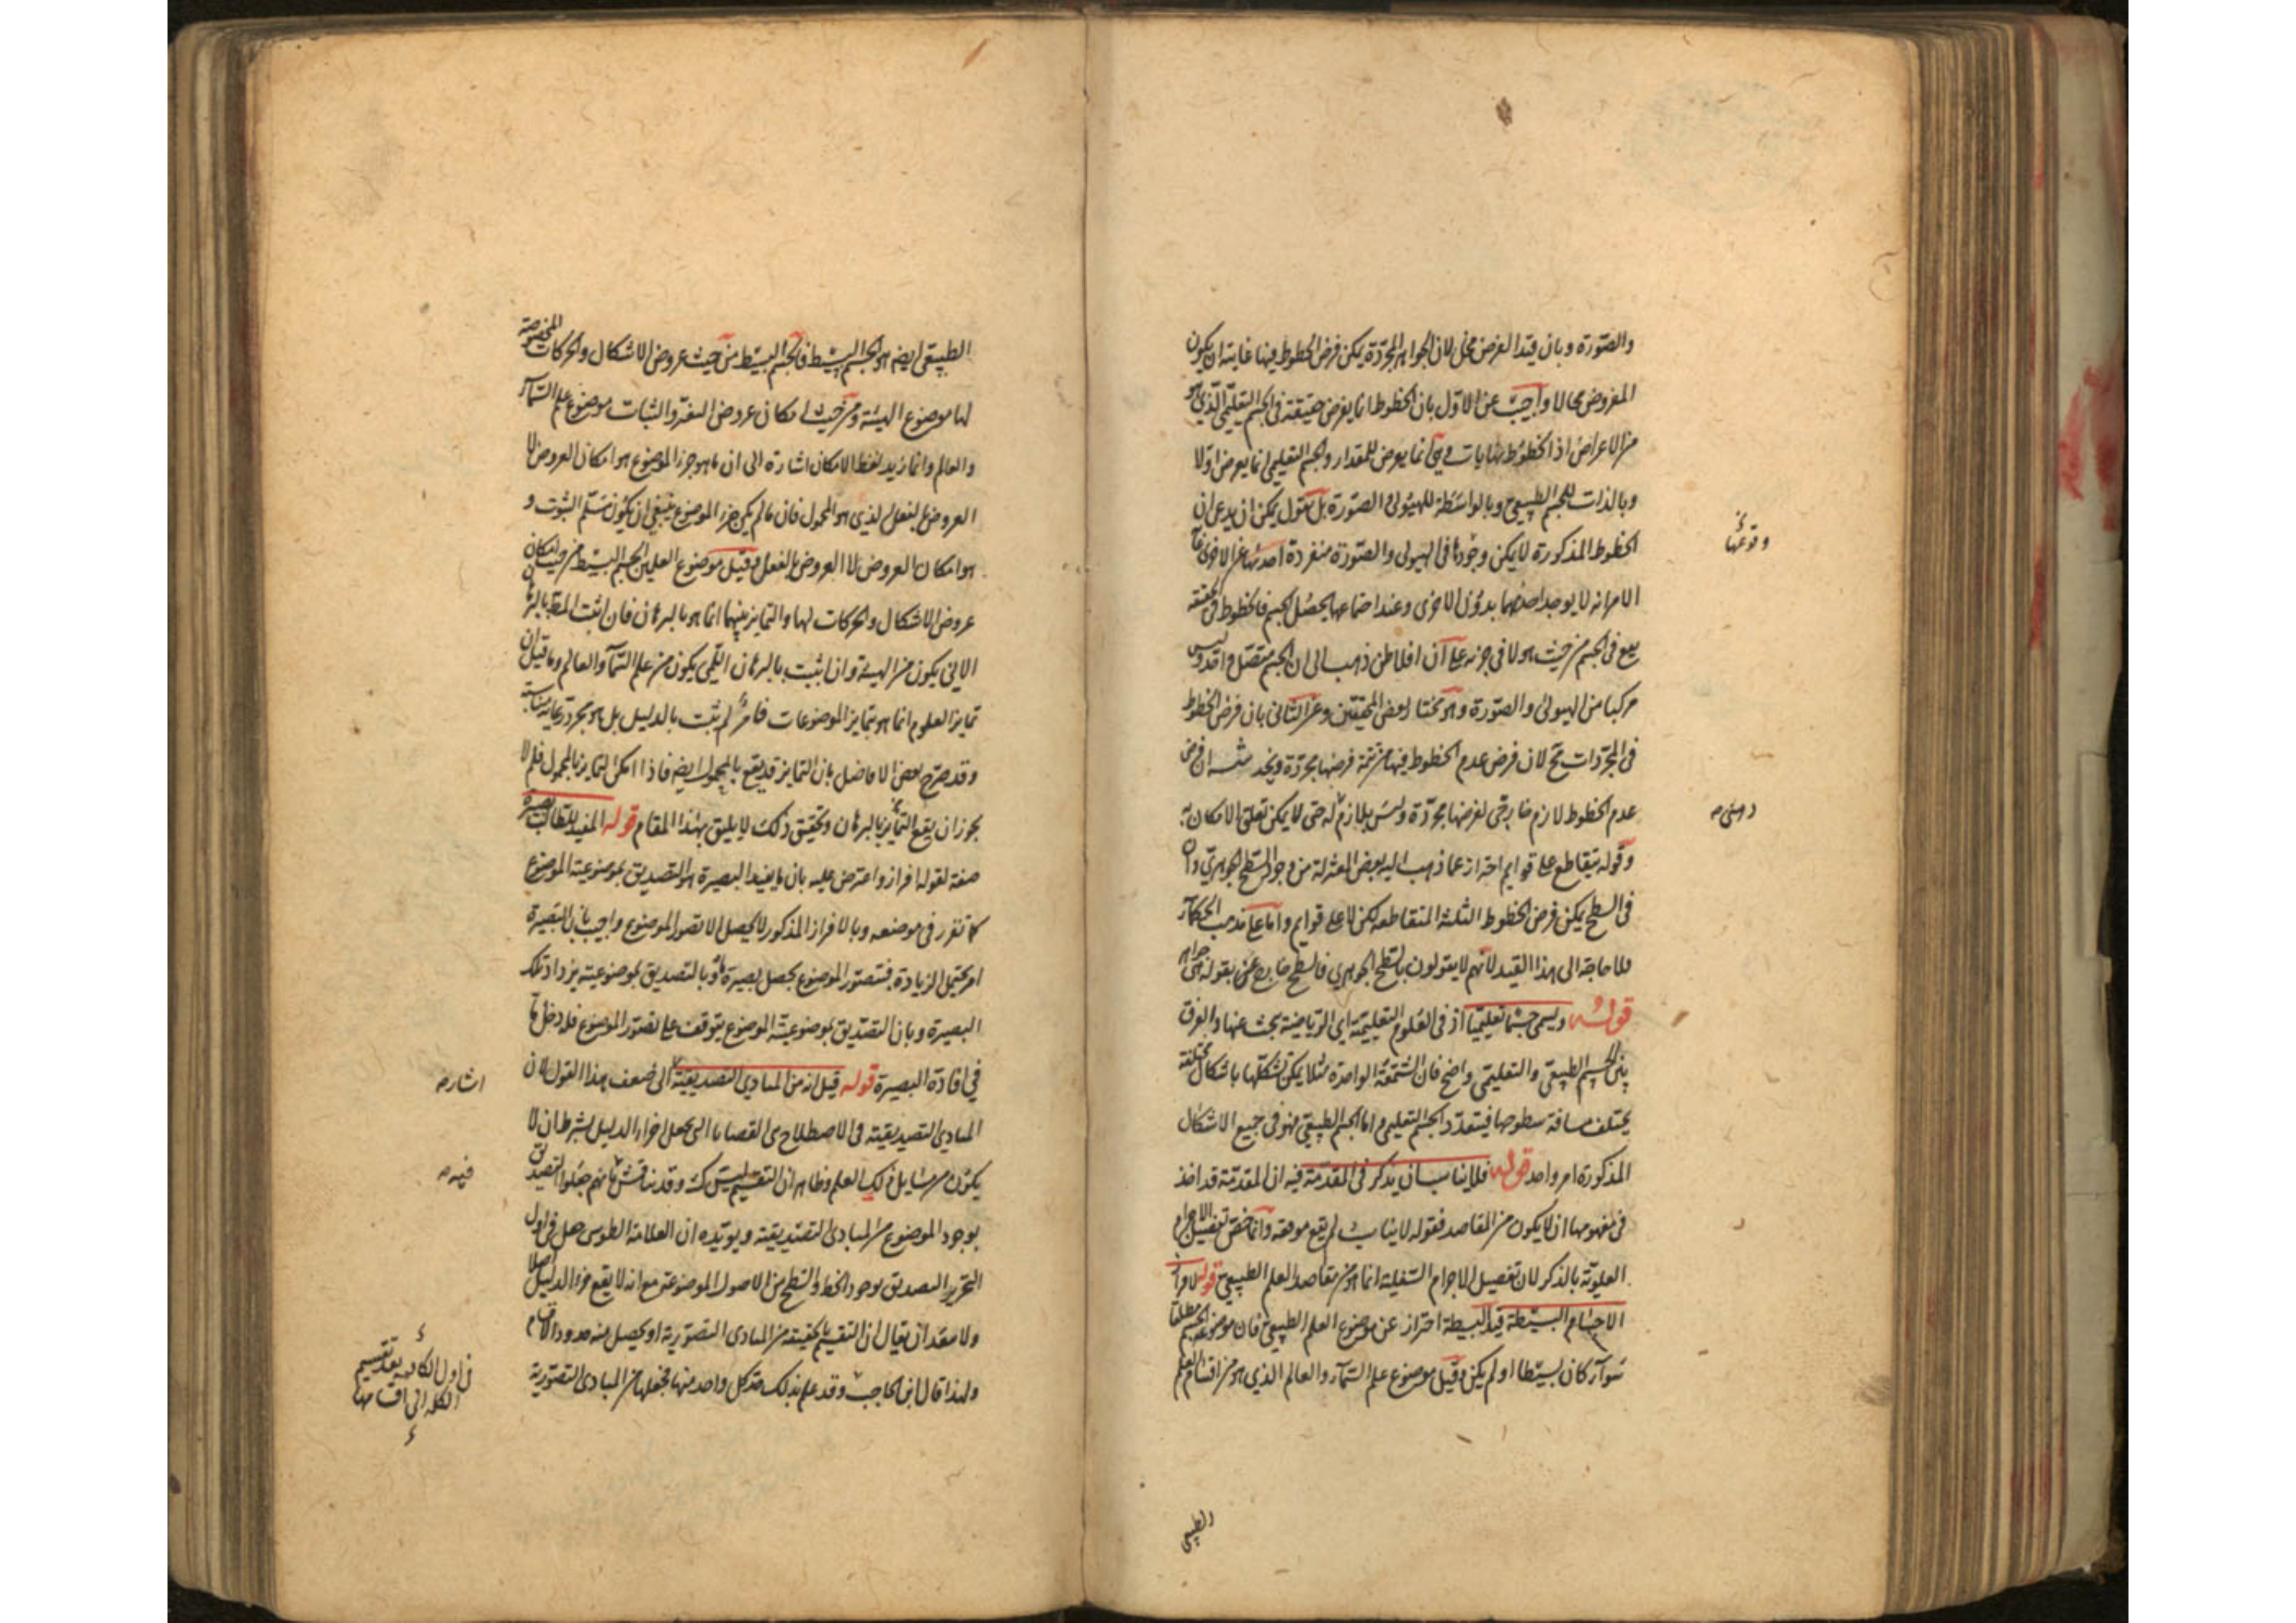 والصورة وبان قيد العرض مخل لان الجواهر المجردة يمكن فرض الخطوط فيها غايته ان يكون
المفروض محالا واجيب عن الاول بان الخطوط انما يفرض حقيقة فى الجسم التعليمى الذى هو
من الاعراض اذ الخطوط نهايات وهى انما يعرض للمقدار والجسم التعليمى انما يعرض اولا
وبالذات للجسم الطبيعى وبالواسطة للهيولى والصورة بل نقول يمكن ان يدعى ان
الخطوط المذكورة لا يمكن وجودها فى الهيولى والصورة منفردة احديهما عن الاخرى
وقوعها
الامر انه لا يوجد احدهما بدون الاخرى وعند اجتماعهما يحصل الجسم فالخطوط فى الحقيقة
يقع فى الجسم من حيث هو لا فى جزئه على ان افلاطن ذهب الى ان الجسم متصل واحد وليس
مركبا من الهيولى والصورة وهو مختار بعض المحققين وعن الثانى بان فرض الخطوط
فى المجردات مح لان فرض عدم الخطوط فيها من تتمة فرضها مجردة ويخدشه ان فرض
عدم الخطوط لازم خارجى لفرضها مجردة وليس بلازم له حتى لا يمكن تعلق الامكان به
وقوله يتقاطع على قوايم احتراز عما ذهب اليه بعض المعتزلة من وجود السطح الجوهرى
فى السطح يمكن فرض الخطوط الثلثة المتقاطعة لكن لا على قوايم واما على مذهب الحكماء
فلا حاجة الى هذا القيد لانهم لا يقولون بالسطح الجوهرى فالسطح خارج عن بقوله هى جواهر
قوله ويسمى جسما تعليميا اذ فى العلوم التعليمية اى الرياضية يبحث عنها والفرق
بين الجسم الطبيعى والتعليمى واضح فان الشمعة الواحدة مثلا يمكن تشكلها باشكال مختلفة
يختلف مسافة سطوحها فيتعدد الجسم التعليمى واما الجسم الطبيعى فهو فى جميع الاشكال
المذكورة امر واحد قوله فلا يناسب ان يذكر فى المقدمة فيه ان المقدمة قد اخذ
فى مفهومها ان لا يكون من المقاصد فقوله لا يناسب لم يقع موقعه وانما خص تفصيل الاجرام
العلوية بالذكر لان تفصيل الاجرام السفلية انما هو من مقاصد العلم الطبيعى قوله
الاجسام البسيطة قيد البسيطة احتراز عن موضوع العلم الطبيعى فان موضوعه الجسم مطلقا
سواء كان بسيطا او لم يكن وقيل موضوع علم السماء والعالم الذى هو من اقسام العلم
الطبيعى
الطبيعى ايضا هو الجسم البسيط فالجسم البسيط من حيث عروض الاشكال والحركات المخصوصة
لها موضوع الهيئة ومن حيث امكان عروض التغير والثبات موضوع علم السماء
والعالم وانما زيد لفظ الامكان اشارة الى ان ما هو جزء الموضوع هو امكان العروض لا
العروض بالفعل الذى هو المحمول فان ما لم يكن جزء الموضوع ينبغى ان يكون مسلم الثبوت و
هو امكان العروض لا العروض بالفعل وقيل موضوع العلمين الجسم البسيط من حيث امكان
عروض الاشكال والحركات لها والتمايز بينهما انما هو بالبرهان فان اثبت المط بالبرهان
الانى يكون من الهيئة وان اثبت بالبرهان اللمى يكون من علم السماء والعالم وما قيل ان
تمايز العلوم انما هو بتمايز الموضوعات فامر لم يثبت بالدليل بل هو مجرد رعاية مناسبة
وقد صرح بعض الافاضل بان التمايز قد يقع بالمحمول ايضا فاذا امكن التمايز بالمحمول فلم لا
يجوز ان يقع التمايز بالبرهان وتحقيق ذلك لا يليق بهذا المقام قوله المفيد للطالب بصيرة
صفة لقوله افراز واعترض عليه بان ما يفيد البصيرة هو التصديق بموضوعية الموضوع
كما تقرر فى موضعه وبالافراز المذكور لا يحصل الا تصور الموضوع واجيب بان البصيرة
امر يحتمل الزيادة فبتصور الموضوع يحصل بصيرة ما وبالتصديق بموضوعيته يزداد تلك
البصيرة وبان التصديق بموضوعية الموضوع يتوقف على تصور الموضوع فله دخل ما
فى افادة البصيرة قوله قيل انه من المبادى التصديقية الى ضعف هذا القول لان
اشارة
المبادى التصديقية فى الاصطلاح هى القضايا التى يجعل اجزاء الدليل بشرط ان لا
يكون من مسايل ذلك العلم وظاهر ان التقسيم ليس كك وقد نناقش بانهم جعلوا التصديق
فيه
بوجود الموضوع من المبادى التصديقية ويؤيده ان العلامة الطوسى جعل فى اول
التحرير التصديق بوجود الخط والسطح من الاصول الموضوعة مع انه لا يقع جزء الدليل اصلا
ولا يبعد ان يقال ان التقسيم بالحقيقة من المبادى التصورية اذ يحصل منه حدود الاقسام
ولهذا قال ابن الحاجب وقد علم بذلك حد كل واحد منها فجعلها من المبادى التصورية
فى اول الكافية بعد تقسيم
الكلمة الى اقسامها